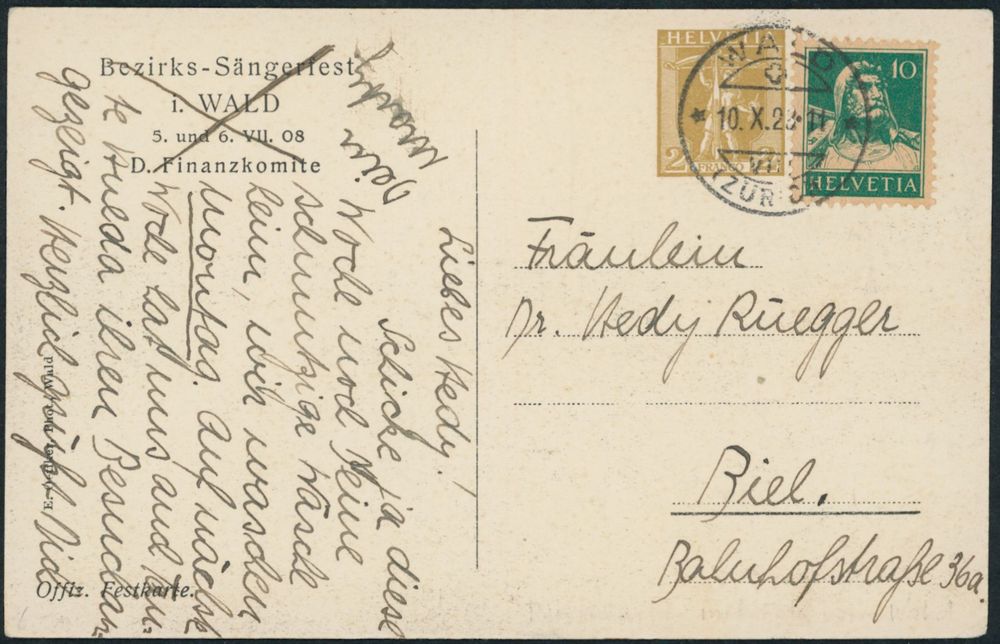 Bezirks-Sängerfest
i. WALD
5. und 6. VII. 08
D. Finanzkomite
HELVETIA
2
FRANCO
10
HELVETIA
WALD
10. X. 23-11
(ZÜRICH)
Fräulein
Dr. Hedy Rüegger
Biel.
Bahnhofstraße 36a.
Liebes Hedy!
Schicke ja diese
Woche noch Deine
schmutzige Wäsche
heim, wir waschen
Montag. Auf nächste
Woche hat uns auch Tan-
te Hulda ihren Besuch an-
gezeigt. Herzlich grüßt Dich
Offiz. Festkarte.